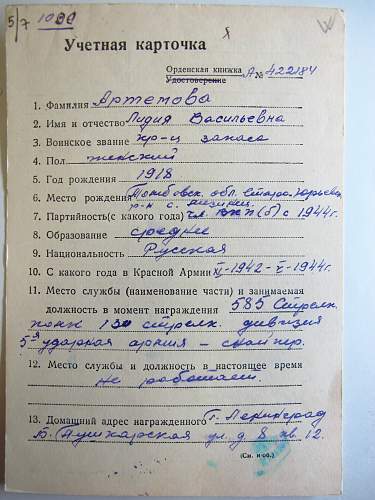 5/7
Учетная карточка
Орденская книжка А № 422184
Удостоверение
1. Фамилия Артемова
2. Имя и отчество Лидия Васильевна
3. Воинское звание кр-ц запаса
4. Пол женский
5. Год рождения 1918
6. Место рождения Тамбовск. обл. Старо-Юрьевск
р-н с.
7. Партийность (с какого года) чл. ВКП(б) с 1944 г.
8. Образование среднее
9. Национальность Русская
10. С какого года в Красной Армии -1942 - -1944г.
11. Место службы (наименование части) и занимаемая
должность в момент награждения 585 Стрелк.
полк 150 стрелк. дивизия
5я ударная армия - снайпер.
12. Место службы и должность в настоящее время
не работает.
13. Домашний адрес награжденного г. Ленинград
Б. Пушкарская ул. д 8 кв. 12.
(См. н/об.)